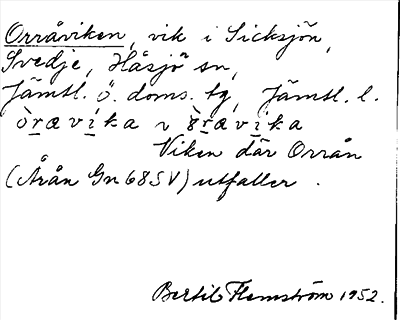 Orråviken, vik i Sicksjön,
Svedje, Håsjö sn,
Jämtl. ö. doms. tg, Jämtl. l.
òrævika ~ òrævika
Viken där Orrån
(Årån Gn 68SV) utfaller.
Bertil Flemström 1952.